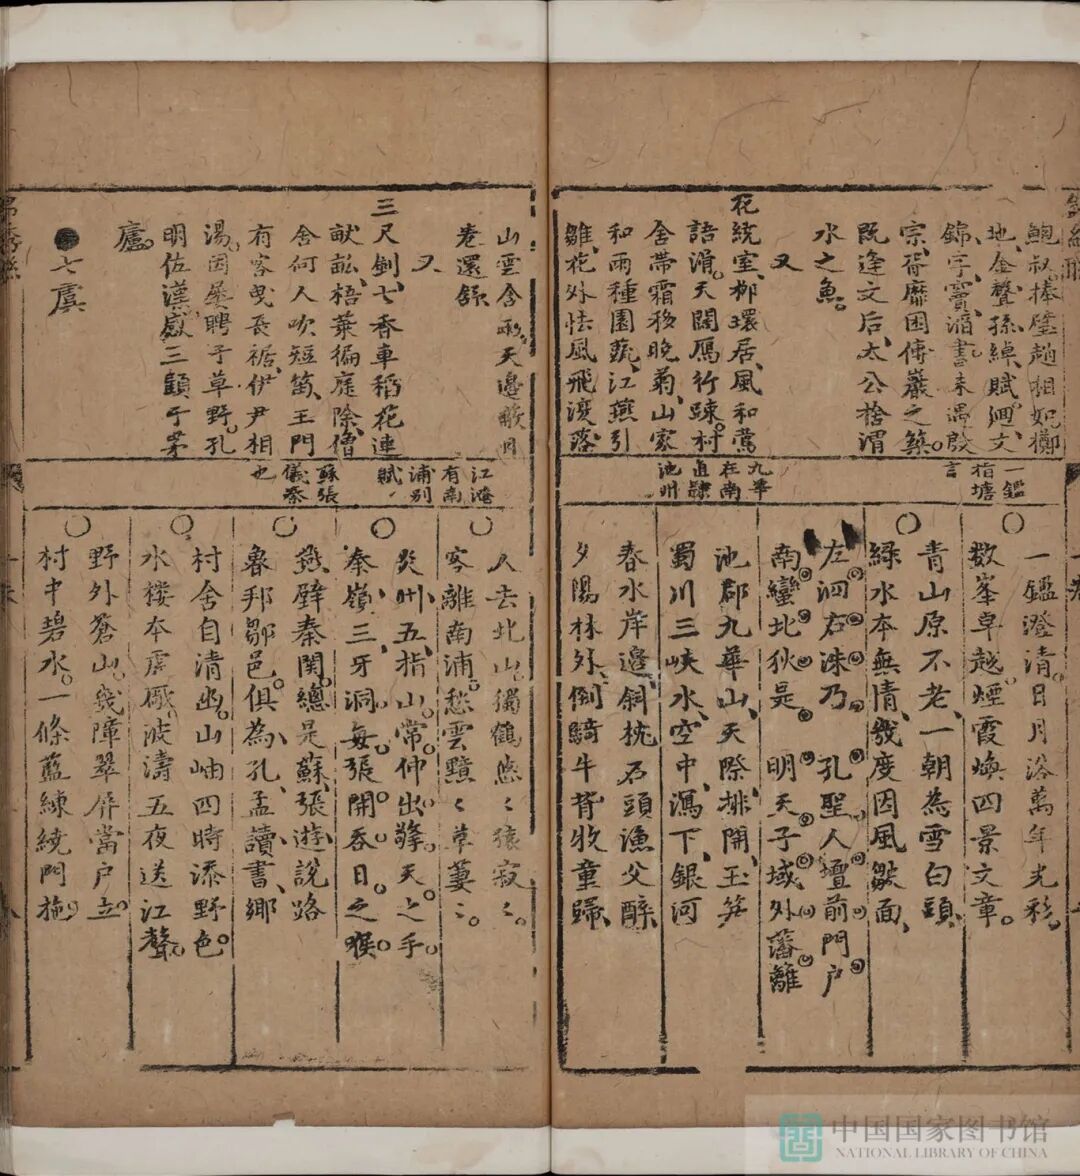 鮑叔。捧璧趙相如。擲
地金聲孫綽賦。廻文
錦字竇滔書。未遇殷
宗、胥靡困傅巖之築。
既逢文后、太公捨渭
水之魚。
又
花繞室、柳環居、風和鶯
語滑。天闊鴈行踈。村
舍帶霜移晚菊、山家
和雨種園蔬、江燕引
雛、花外怯風飛復落
一鑑
指塘
言
九華
在南
直隸
池州
一鑑澄清。日月浴萬年光彩。
數峯卓越。煙霞煥四景文章。
青山原不老、一朝為雪白頭、
綠水本無情、幾度因風皺面、
左泗右洙乃 孔聖人壇前門户
南蠻北狄是 明天子域外藩籬
池郡九華山、天際排開玉笋
蜀川三峽水、空中瀉下銀河
春水岸邊、斜枕石頭漁父醉
夕陽林外、倒騎牛背牧童歸、
山雲含雨、天邊月
卷還舒
又
三尺劍、七香車稻花連
畎畝、梧葉徧庭除、僧
舍何人吹短笛、王門
有客曳長裾、伊尹相
湯。因聘于草野。孔
明佐漢、感三顧于茅
廬。
七虞
江淹
有南
浦別
賦
蘇張
儀秦
也
人去北山。獨鶴怨〻猿寂〻。
客離南浦。愁雲黯〻草萋〻。
炎州五指山。常伸出擎天之手。
奉嶺三牙洞。每張開吞日之喉。
燕壁秦關。總是蘇、張、遊說路
魯邦鄒邑。俱為孔、孟讀書、鄉
村舍自清幽。山岫四時添野色。
水樓本虛敞。波濤五夜送江聲。
野外蒼山。幾障翠屏當户立。
村中碧水。一條藍練繞門施。